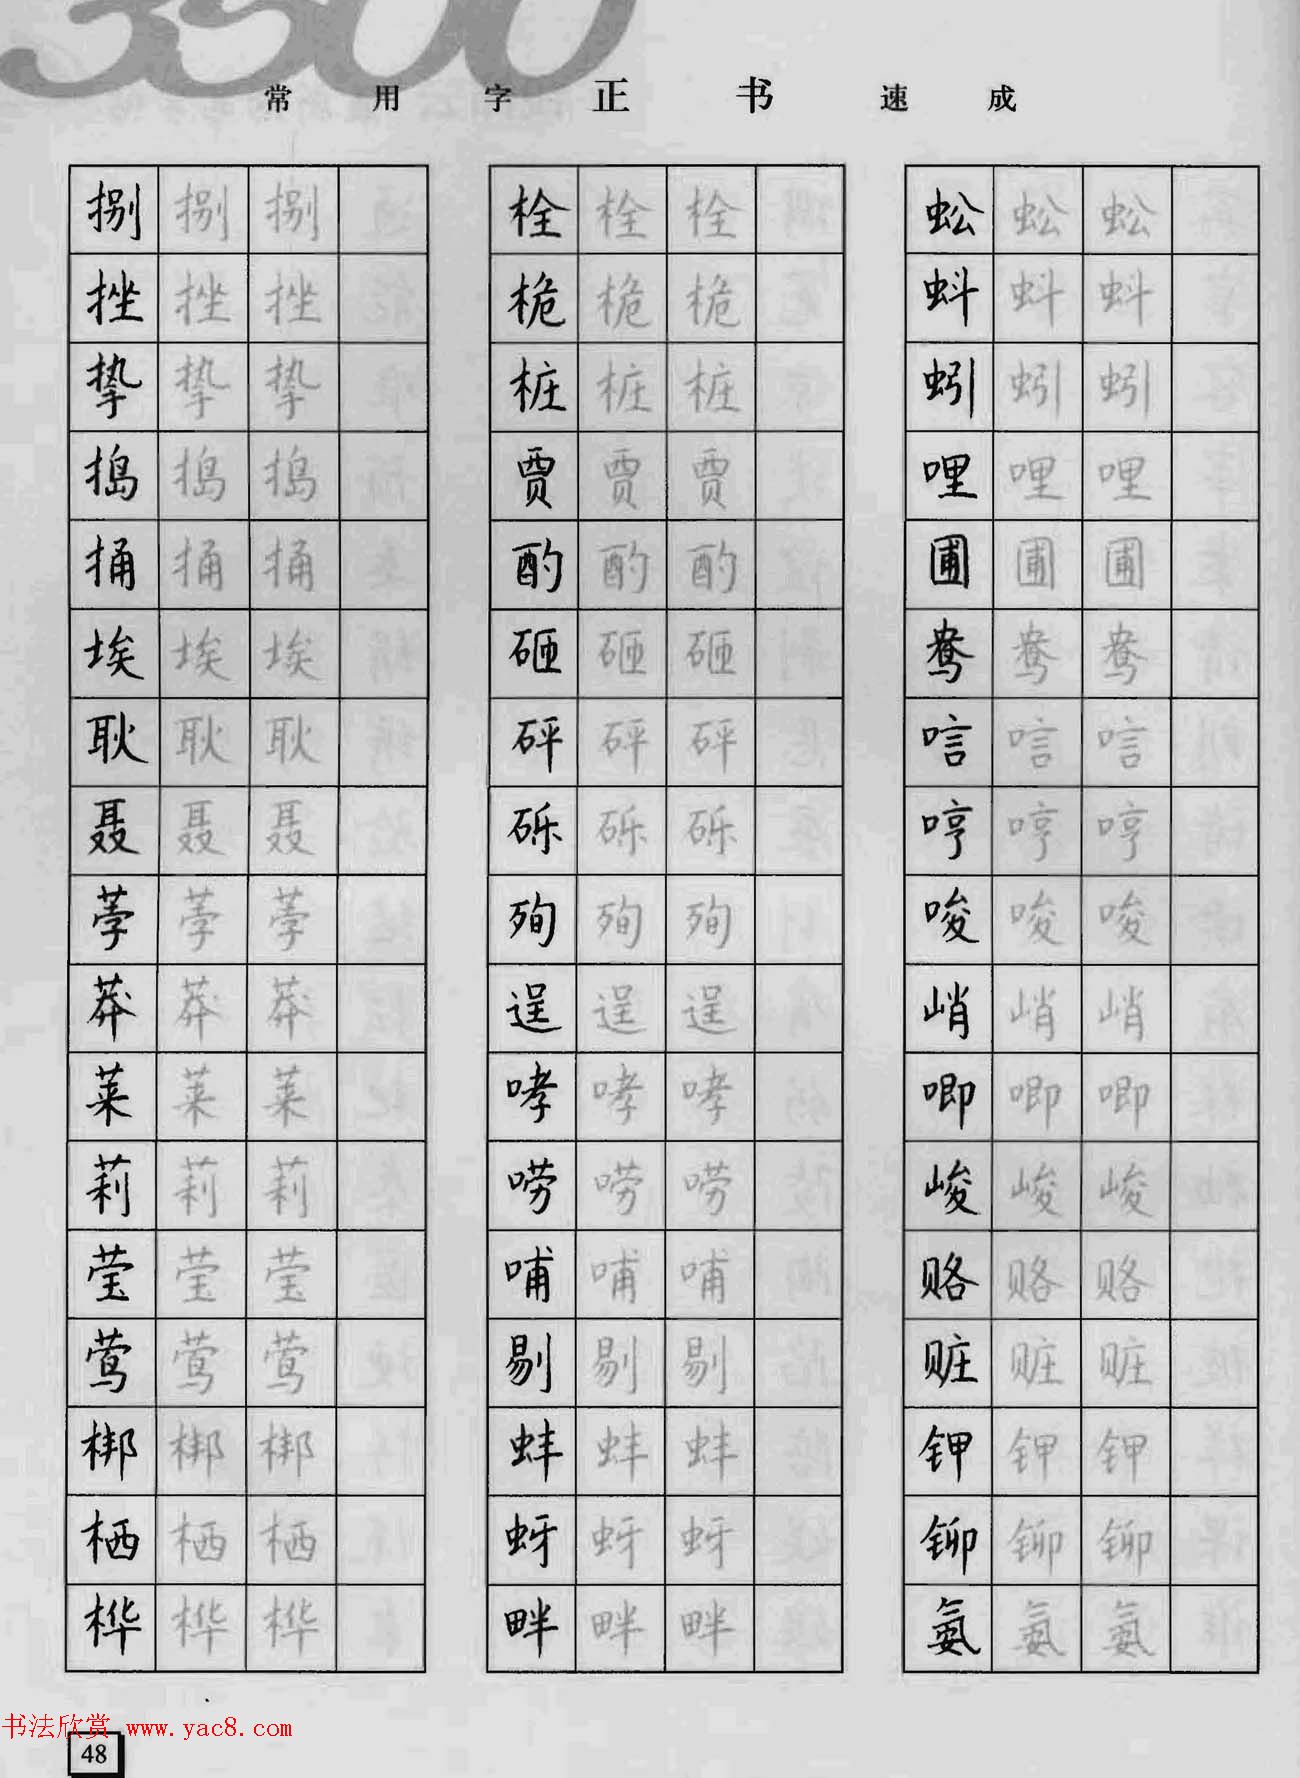 3500
常用字正书速成
捌 捌 捌
挫 挫 挫
挚 挚 挚
捣 捣 捣
捅 捅 捅
埃 埃 埃
耿 耿 耿
聂 聂 聂
荸 荸 荸
莽 莽 莽
莱 莱 莱
莉 莉 莉
莹 莹 莹
莺 莺 莺
梆 梆 梆
栖 栖 栖
桦 桦 桦
栓 栓 栓
桅 桅 桅
桩 桩 桩
贾 贾 贾
酌 酌 酌
砸 砸 砸
砰 砰 砰
砾 砾 砾
殉 殉 殉
逞 逞 逞
哮 哮 哮
唠 唠 唠
哺 哺 哺
剔 剔 剔
蚌 蚌 蚌
蚜 蚜 蚜
畔 畔 畔
蚣 蚣 蚣
蚪 蚪 蚪
蚓 蚓 蚓
哩 哩 哩
圃 圃 圃
鸯 鸯 鸯
唁 唁 唁
哼 哼 哼
唆 唆 唆
峭 峭 峭
唧 唧 唧
峻 峻 峻
赂 赂 赂
赃 赃 赃
钾 钾 钾
铆 铆 铆
氨 氨 氨
书法欣赏 www.yac8.com
48